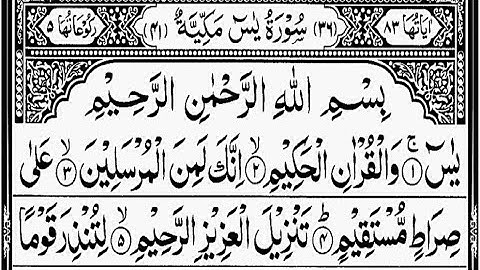 اٰیَاتُهَا ٨٣ (٣٦) سُوْرَةُ یٰسٓ مَكِّیَّةٌ (٤١) رُكُوْعَاتُهَا ٥
بِسْمِ اللّٰهِ الرَّحْمٰنِ الرَّحِیْمِ
یٰسٓ ۚ﴿١﴾ وَالْقُرْاٰنِ الْحَكِیْمِ ۙ﴿٢﴾ اِنَّكَ لَمِنَ الْمُرْسَلِیْنَ ۙ﴿٣﴾ عَلٰی
صِرَاطٍ مُّسْتَقِیْمٍ ؕ﴿٤﴾ تَنْزِیْلَ الْعَزِیْزِ الرَّحِیْمِ ۙ﴿٥﴾ لِتُنْذِرَ قَوْمًا